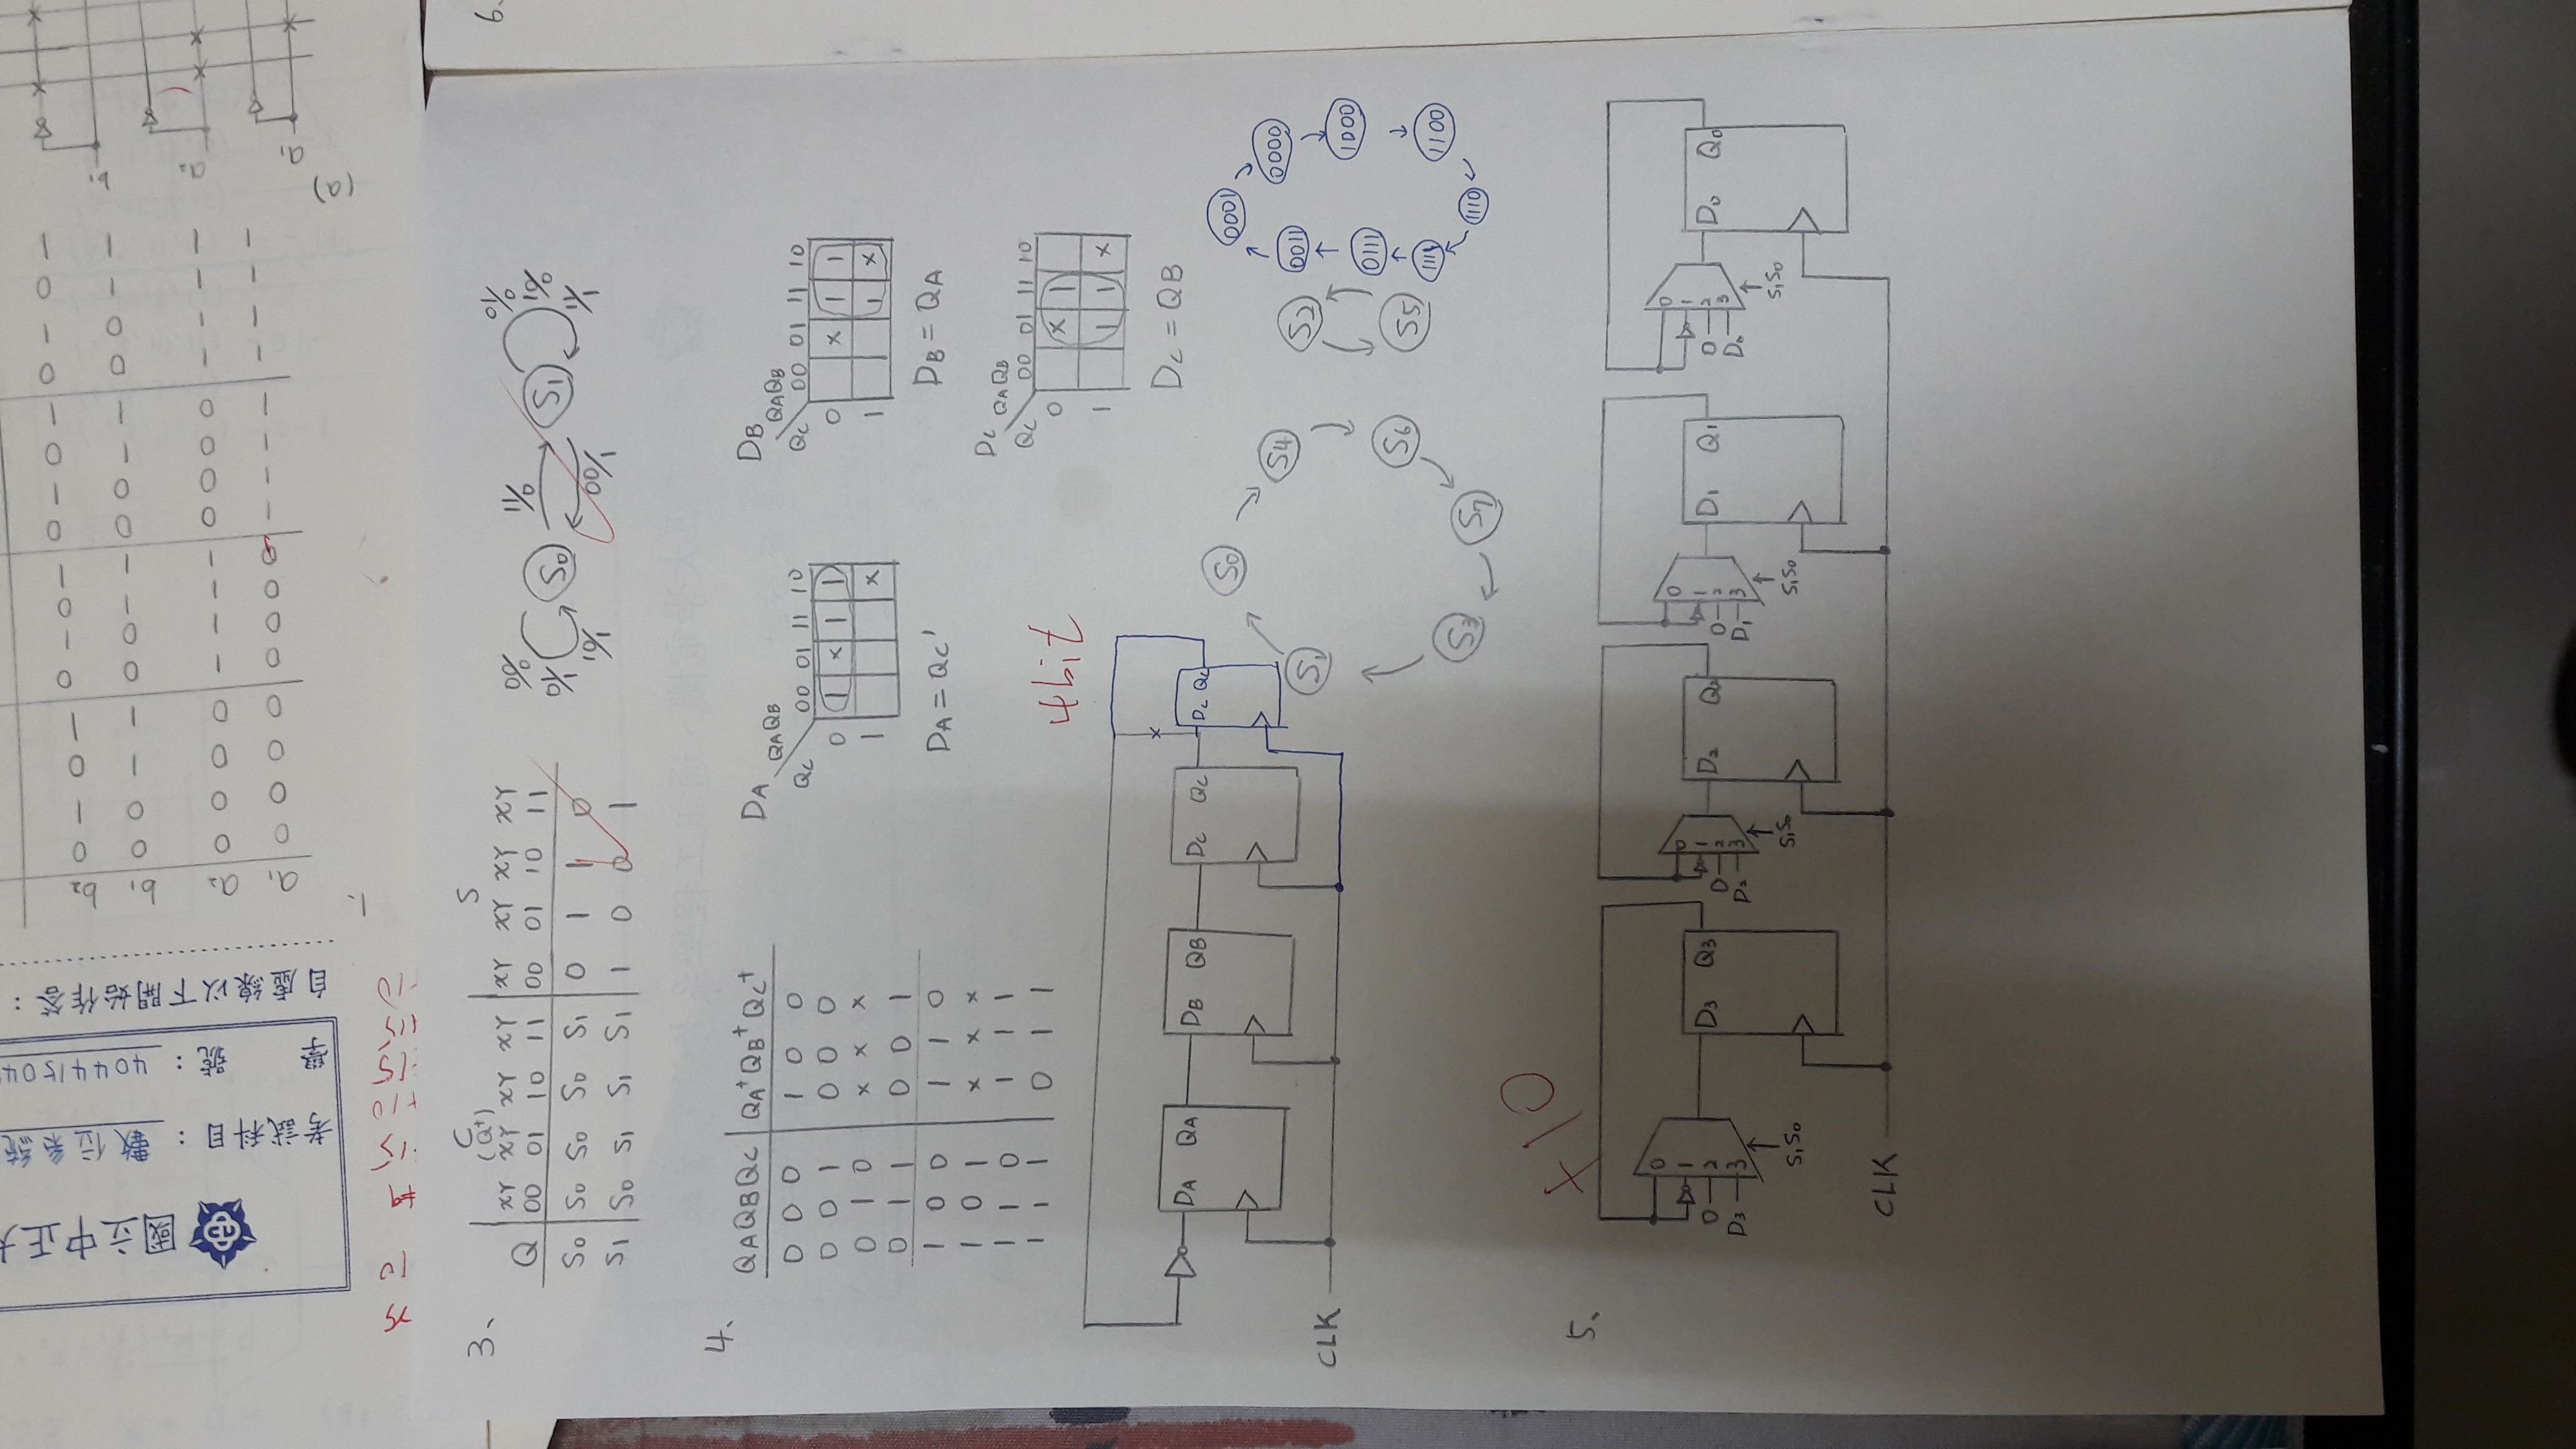 國立中正大
考試科目：數位系統
學 號：40441504
自虛線以下開始作答：
1.
a1 a2 b1 b2
0 0 0 0
0 0 0 1
0 0 1 0
0 0 1 1
0 1 0 0
0 1 0 1
0 1 1 0
0 1 1 1
1 0 0 0
1 0 0 1
1 0 1 0
1 0 1 1
1 1 0 0
1 1 0 1
1 1 1 0
1 1 1 1
(a)
a1 a2 b1
3.
C S
(Q+)
XY XY XY XY XY XY XY XY
Q 00 01 10 11 00 01 10 11
S0 S0 S0 S0 S1 0 1 1 0
S1 S0 S1 S1 S1 1 0 0 1
00/0 11/0 01/0
01/1 S0 S1 10/0
10/1 00/1 11/1
6.
4.
QA QB QC QA+ QB+ QC+
0 0 0 1 0 0
0 0 1 0 0 0
0 1 0 x x x
0 1 1 0 0 1
1 0 0 1 1 0
1 0 1 x x x
1 1 0 1 1 1
1 1 1 0 1 1
DA
QAQB
QC 00 01 11 10
0 1 x 1 1
1 x
DA = QC'
DB
QAQB
QC 00 01 11 10
0 x 1 1
1 1 x
DB = QA
DC
QAQB
QC 00 01 11 10
0 x 1
1 1 1 x
DC = QB
4bit
DA QA DB QB DC QC DC QC
CLK
S0
S4
S6
S7
S3
S1
S2
S5
0001
0000
1000
1100
1110
1111
0111
0011
+10
5.
0 0 0 0
1 D3 Q3 1 D2 Q2 1 D1 Q1 1 D0 Q0
0 2 0 2 0 2 0 2
D3 3 D2 3 D1 3 D0 3
S1S0 S1S0 S1S0 S1S0
CLK